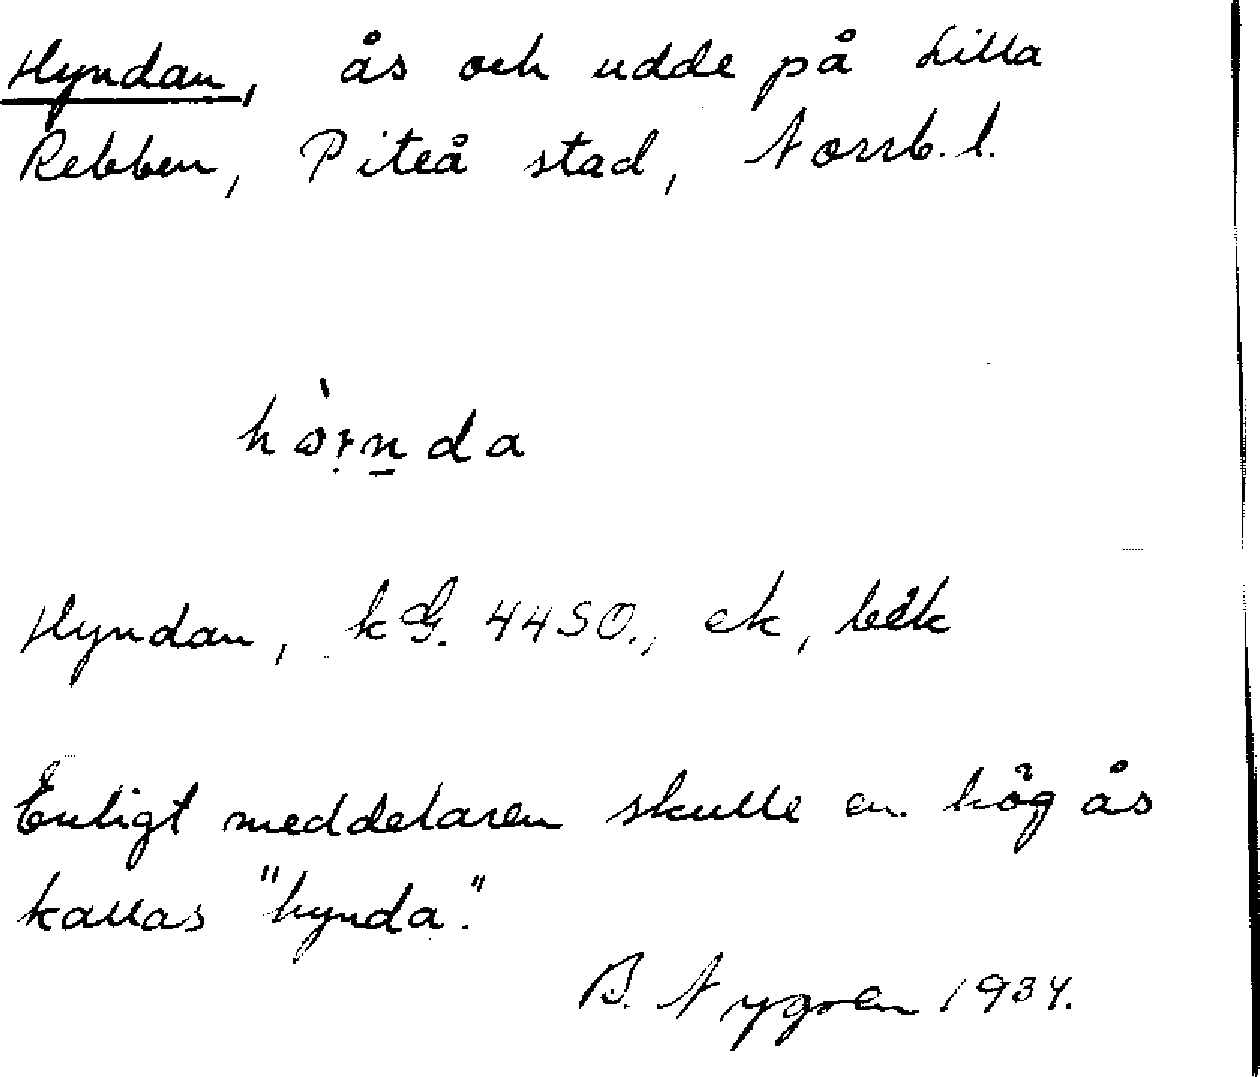 Hyndan, ås och udde på Lilla
Rebben, Piteå stad, Norrb. l.
Hyndan, kG. 4450., ek, bek
Enligt meddelaren skulle en hög ås
kallas "hynda".
B. Nygren 1934.